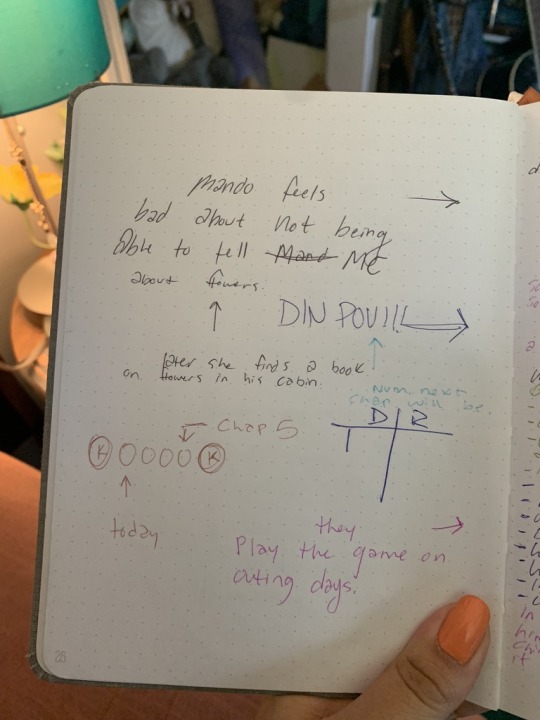 mando feels
bad about not being
Able to tell Mand ME
about flowers.
DIN POV!!!
later she finds a book
on flowers in his cabin.
next
chap will be
D R
1
Chap 5
K O O O O K
today
they
Play the game on
outing days.
26
in
him
it